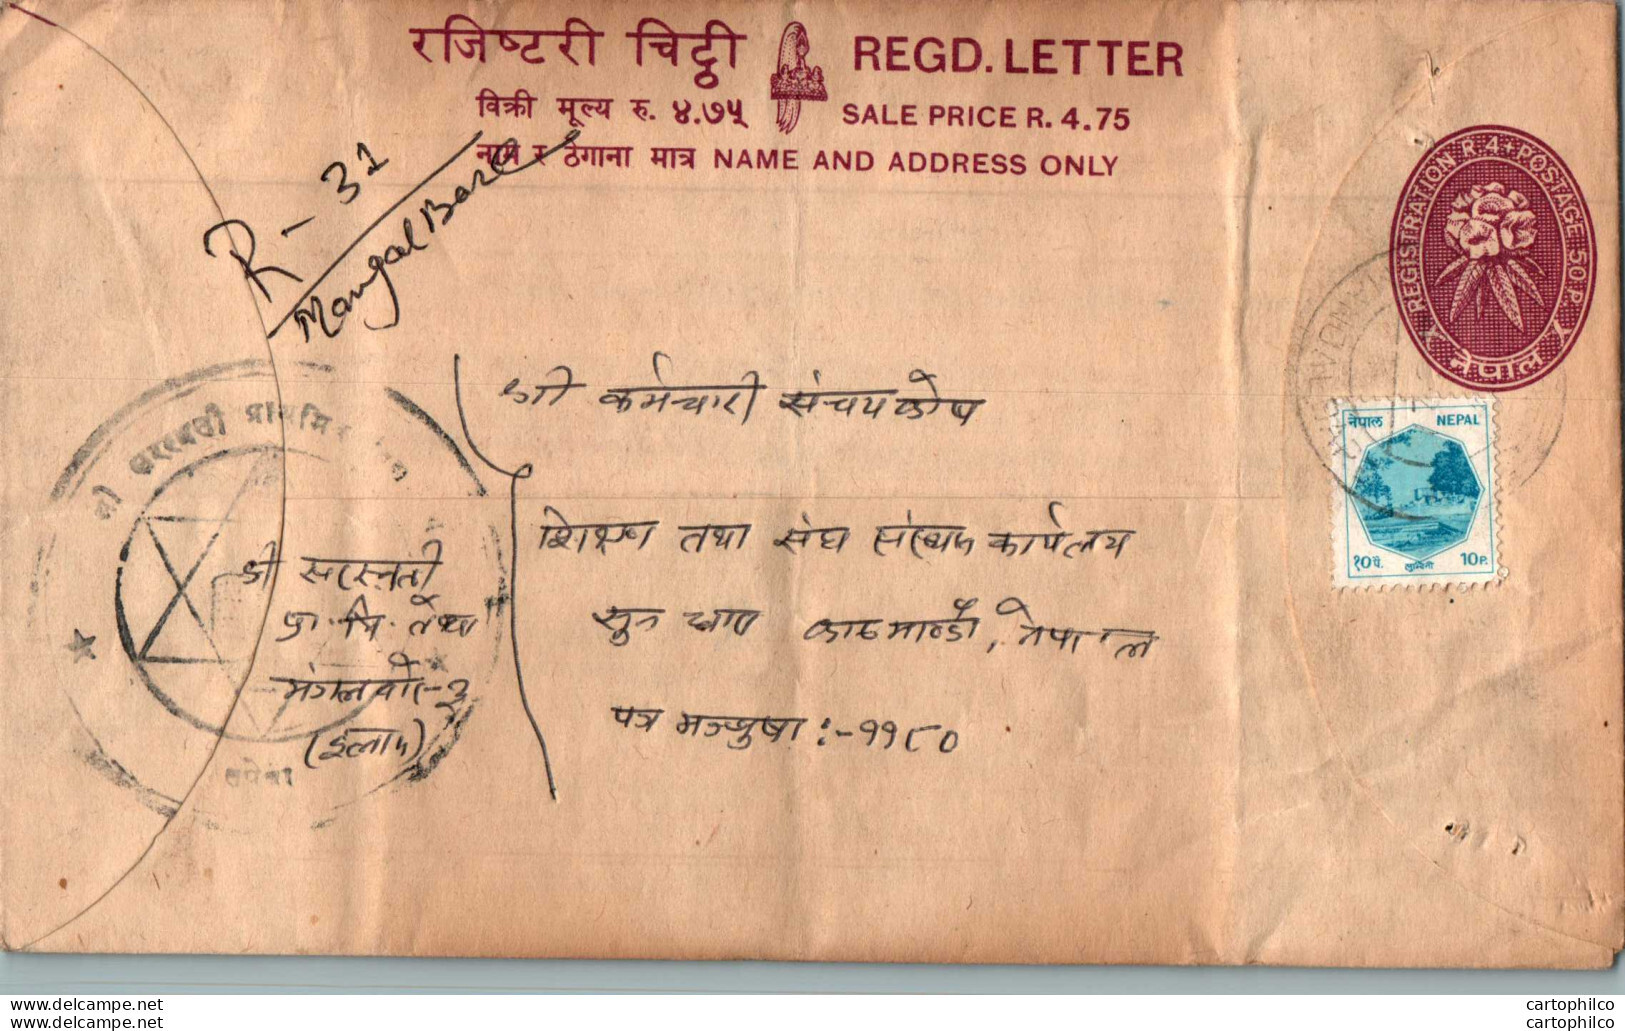 रजिष्टरी चिट्ठी REGD. LETTER
विक्री मूल्य रु. ४.७५ SALE PRICE R. 4.75
नाम र ठेगाना मात्र NAME AND ADDRESS ONLY
R - 31
Mangal Bare
REGISTRATION R 4 + POSTAGE 50 P.
नेपाल
नेपाल NEPAL
१० पै. लुम्बिनी 10 P.
श्री कर्मचारी संचयकोष
शिक्षण तथा संघ संस्थान कार्यालय
काठमाण्डौ, नेपाल
पत्र मञ्जुषा :- ११८०
श्री सरस्वती
प्रा. वि.
मंगलवारे - ३
(इलाम)
श्री सरस्वती प्राथमिक
cartophilco cartophilco
cartophilco cartophilco